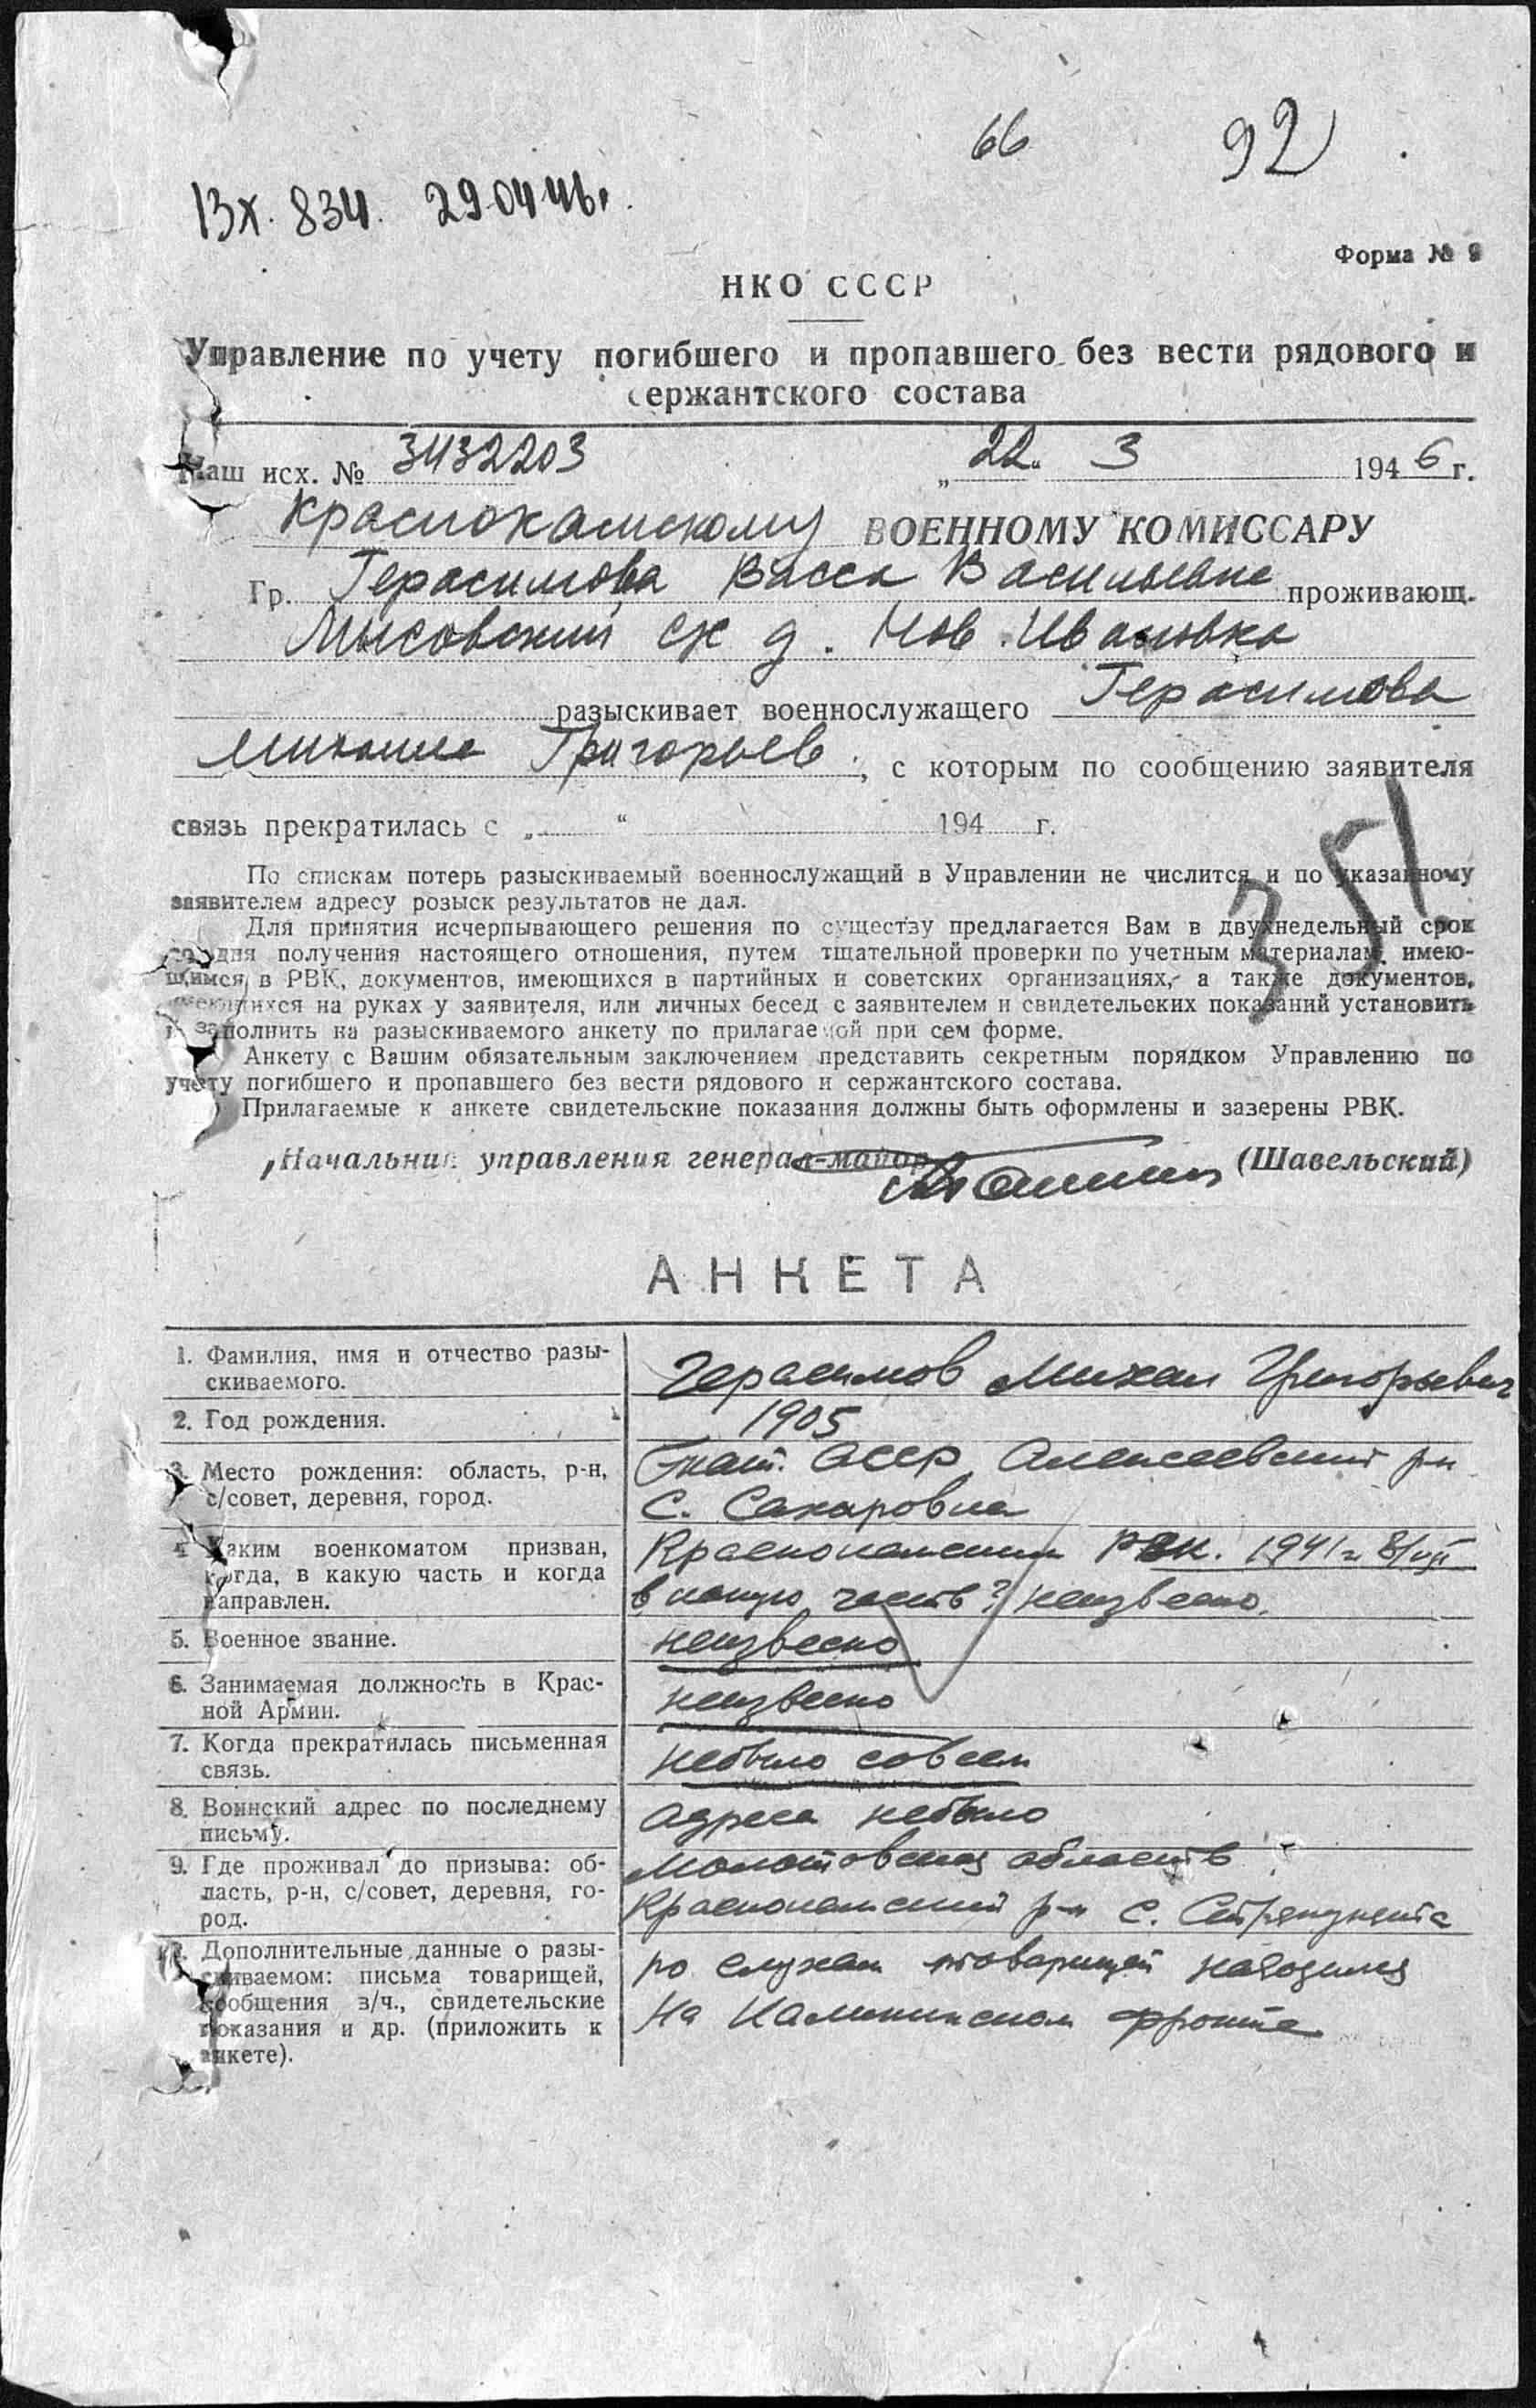 66 92
Вх. 834. 29 04 46г.
Форма № 9
НКО СССР
Управление по учету погибшего и пропавшего без вести рядового и
сержантского состава
Наш исх. № 3432203 „22." 3 1946 г.
Краснокамскому ВОЕННОМУ КОМИССАРУ
Гр. Герасимова Васса Васильевна проживающ.
Мысовский с/с д. Нов. Ивановка
разыскивает военнослужащего Герасимова
Михаила Григорьев., с которым по сообщению заявителя
связь прекратилась с „ " 194 г.
351
По спискам потерь разыскиваемый военнослужащий в Управлении не числится и по указанному
заявителем адресу розыск результатов не дал.
Для принятия исчерпывающего решения по существу предлагается Вам в двухнедельный срок
со дня получения настоящего отношения, путем тщательной проверки по учетным материалам, имею-
щимся в РВК, документов, имеющихся в партийных и советских организациях, а также документов,
имеющихся на руках у заявителя, или личных бесед с заявителем и свидетельских показаний установить
и заполнить на разыскиваемого анкету по прилагаемой при сем форме.
Анкету с Вашим обязательным заключением представить секретным порядком Управлению по
учету погибшего и пропавшего без вести рядового и сержантского состава.
Прилагаемые к анкете свидетельские показания должны быть оформлены и зазерены РВК.
Начальник управления генерал-майор (Шавельский)
АНКЕТА
1. Фамилия, имя и отчество разы-
скиваемого.
Герасимов Михаил Григорьевич
2. Год рождения.
1905
3. Место рождения: область, р-н,
с/совет, деревня, город.
АССР Алексеевский р-н
с.
4. Каким военкоматом призван,
когда, в какую часть и когда
направлен.
Краснокамским РВК. 1941 г. 8/VIII
в какую часть? неизвесно.
5. Военное звание.
неизвесно
6. Занимаемая должность в Крас-
ной Армии.
неизвесно
7. Когда прекратилась письменная
связь.
небыло совсем
8. Воинский адрес по последнему
письму.
адреса небыло
9. Где проживал до призыва: об-
ласть, р-н, с/совет, деревня, го-
род.
Молотовская область
Краснокамский р-н с.
10. Дополнительные данные о разы-
скиваемом: письма товарищей,
сообщения з/ч., свидетельские
показания и др. (приложить к
анкете).
по слухам товарищей находился
на Калининском фронте